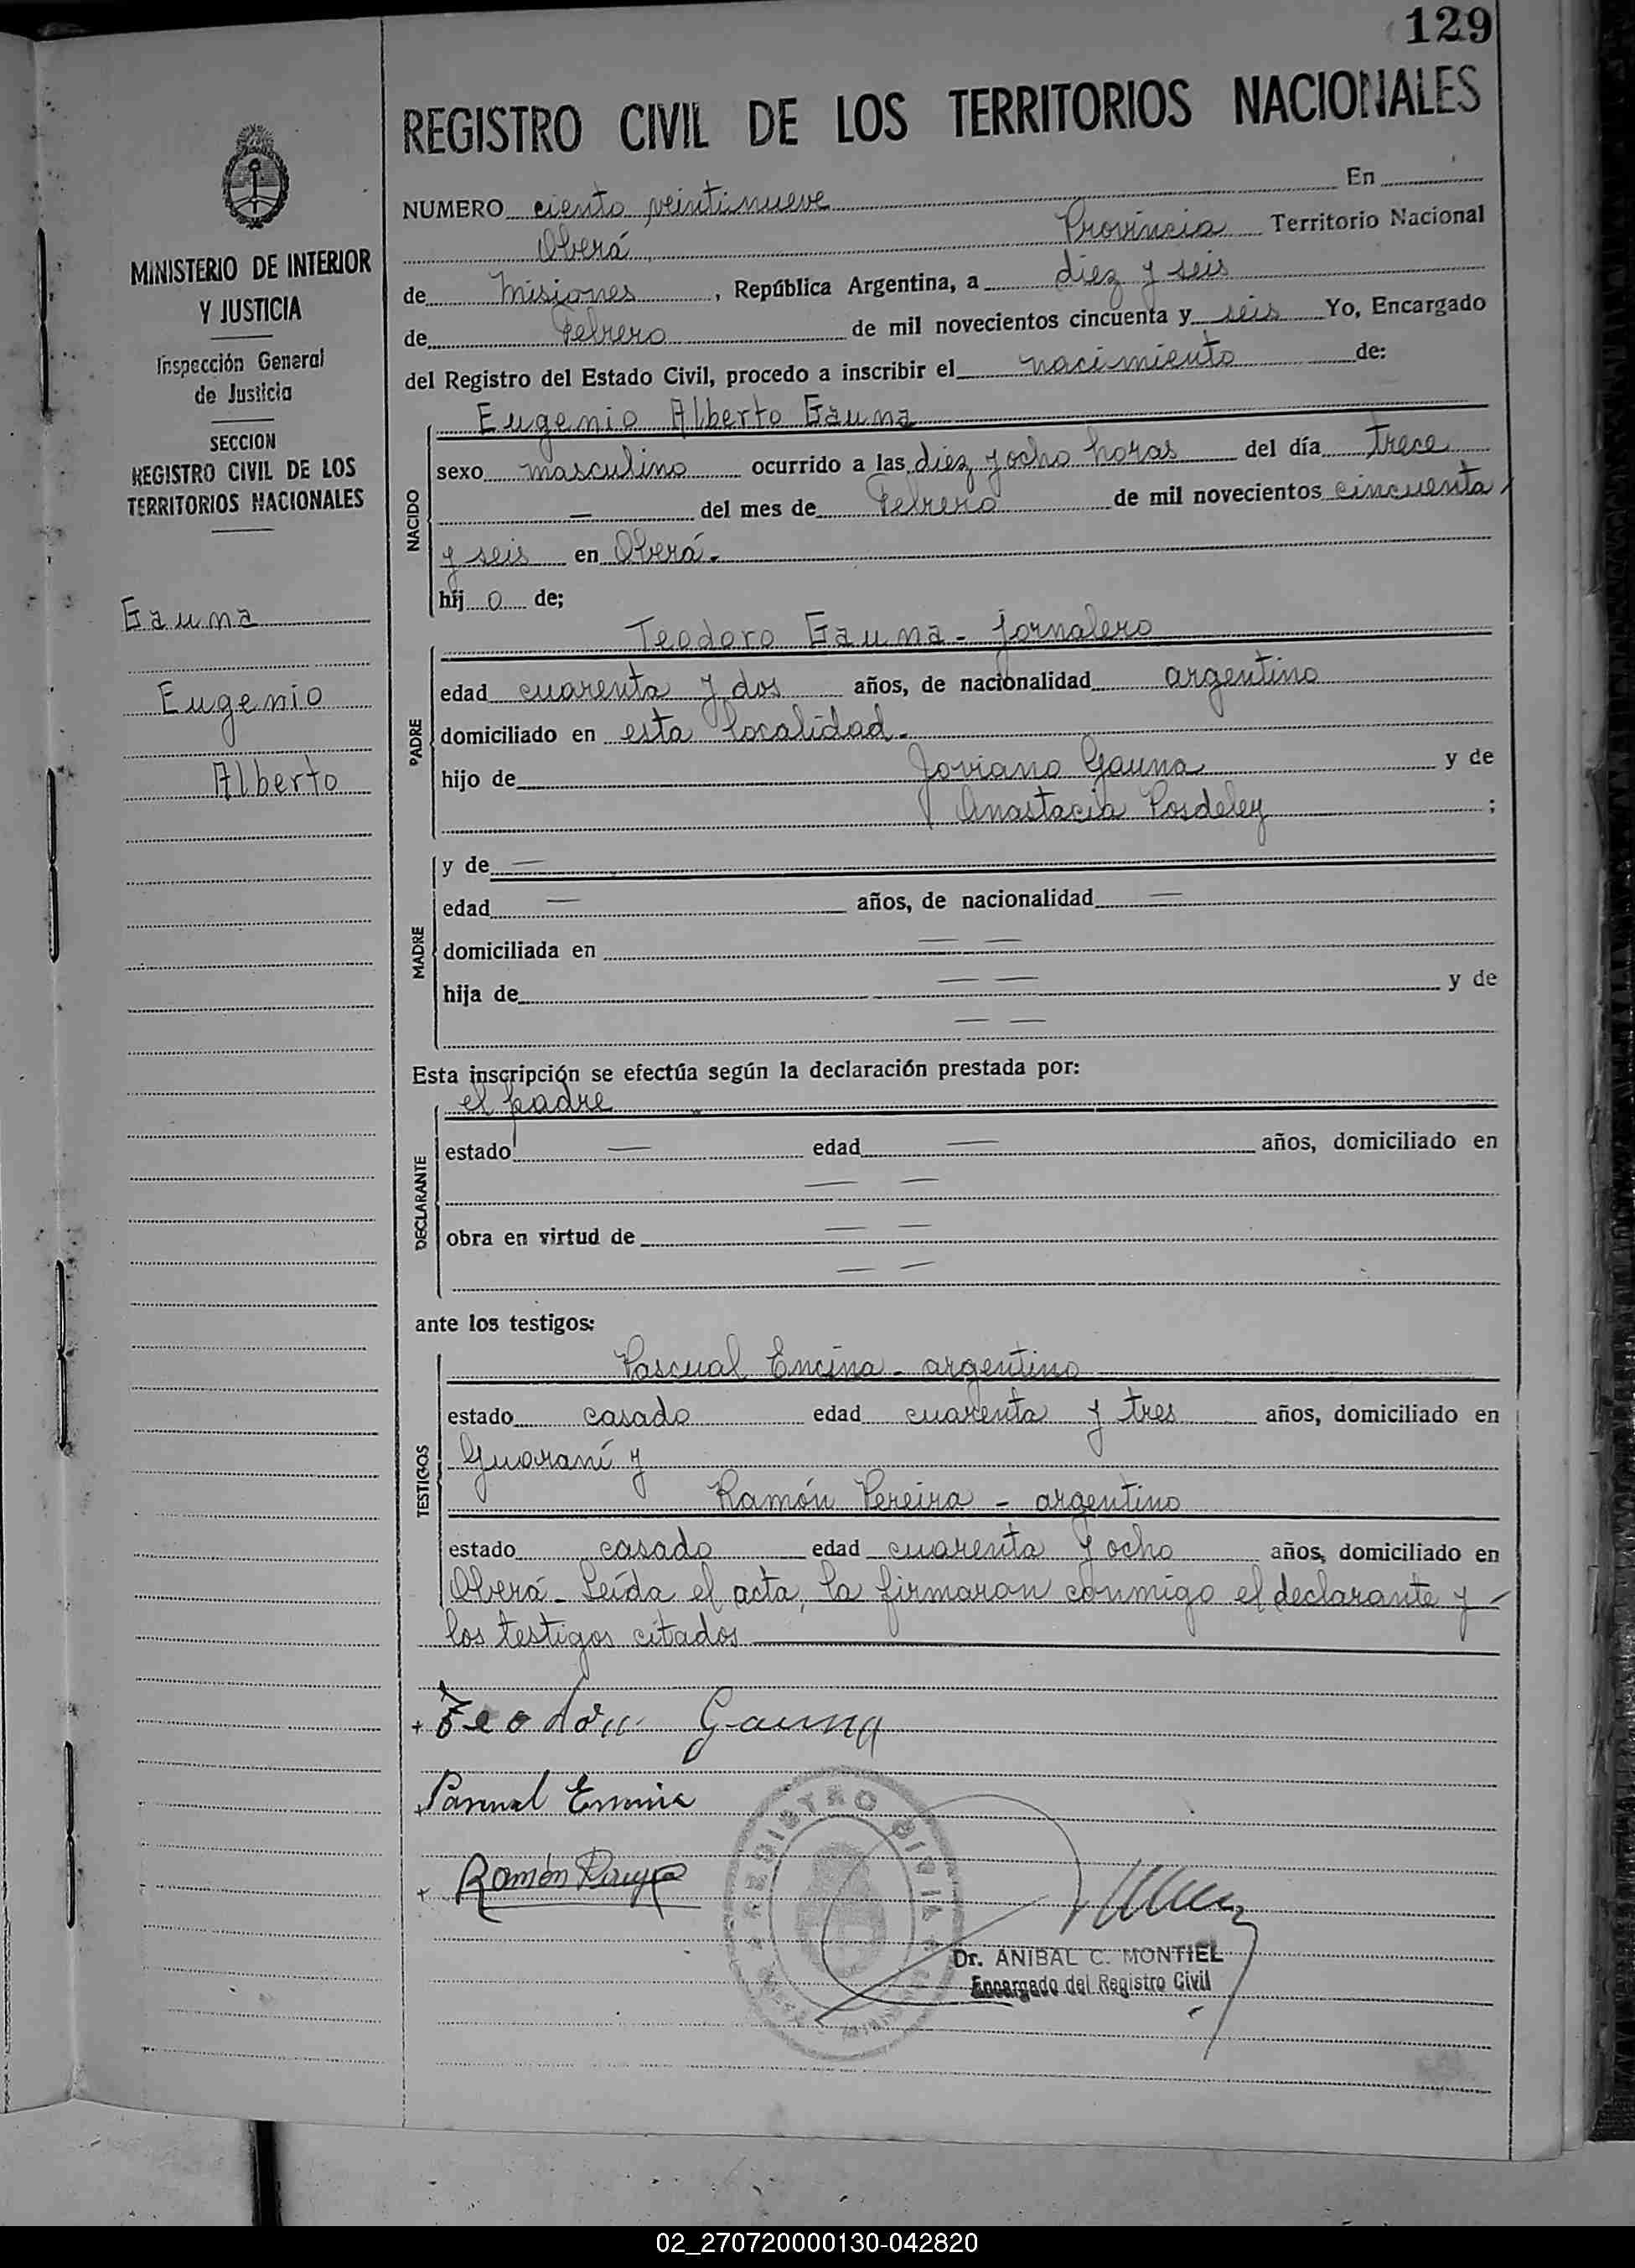 129
REGISTRO CIVIL DE LOS TERRITORIOS NACIONALES
MINISTERIO DE INTERIOR
Y JUSTICIA
Inspección General
de Justicia
SECCION
REGISTRO CIVIL DE LOS
TERRITORIOS NACIONALES
Gauna
Eugenio
Alberto
NUMERO ciento veintinueve En
Oberá, Provincia Territorio Nacional
de Misiones, República Argentina, a diez y seis
de Febrero de mil novecientos cincuenta y seis Yo, Encargado
del Registro del Estado Civil, procedo a inscribir el nacimiento de:
NACIDO
Eugenio Alberto Gauna
sexo masculino ocurrido a las diez y ocho horas del día trece
— del mes de Febrero de mil novecientos cincuenta
y seis en Oberá.
hij o de;
PADRE
Teodoro Gauna - jornalero
edad cuarenta y dos años, de nacionalidad argentino
domiciliado en esta localidad.
hijo de Joviano Gauna y de
Anastacia Posdeley ;
MADRE
y de —
edad — años, de nacionalidad —
domiciliada en — —
hija de — — y de
— —
Esta inscripción se efectúa según la declaración prestada por:
DECLARANTE
el padre
estado — edad — años, domiciliado en
— —
obra en virtud de — —
— —
ante los testigos:
TESTIGOS
Pascual Encina - argentino
estado casado edad cuarenta y tres años, domiciliado en
Guaraní y
Ramón Pereira - argentino
estado casado edad cuarenta y ocho años, domiciliado en
Oberá - Leída el acta, la firmaron conmigo el declarante y
los testigos citados
+ Teodoro Gauna
+ Pascual Encina
+ Ramón
REGISTRO CIVIL
Dr. ANIBAL C. MONTIEL
Encargado del Registro Civil
02_270720000130-042820